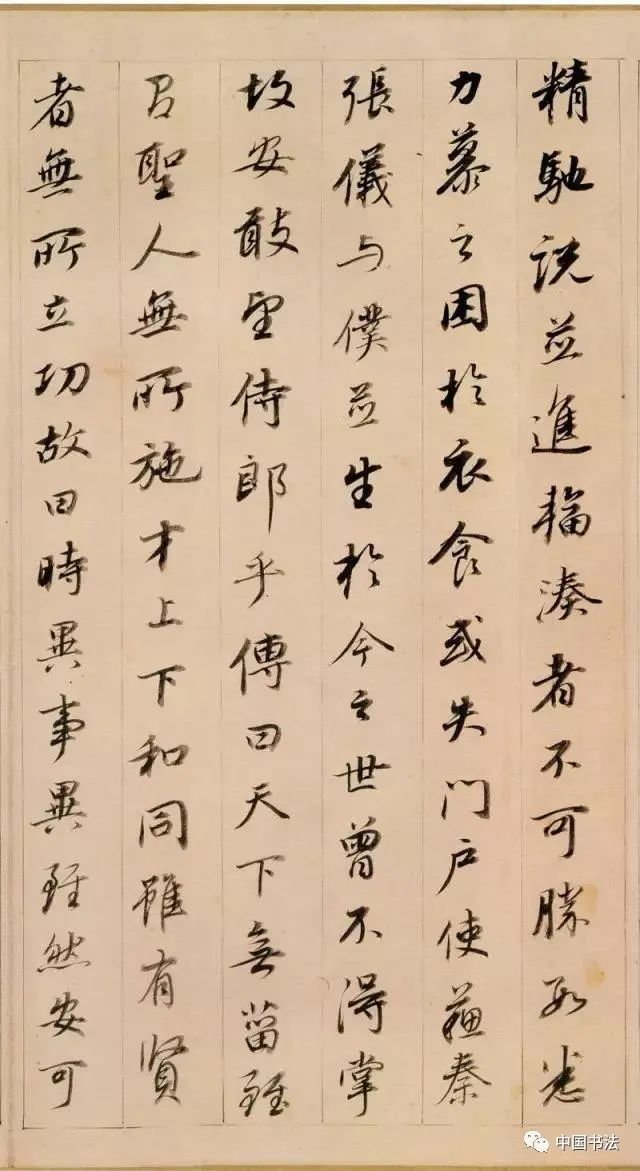 精馳説並進輻湊者不可勝數悉
力慕之困於衣食或失門户使蘇秦
張儀与僕並生於今之世曾不得掌
故安敢望侍郎乎傳曰天下無菑雖
有聖人無所施才上下和同雖有賢
者無所立功故曰時異事異雖然安可
中国书法